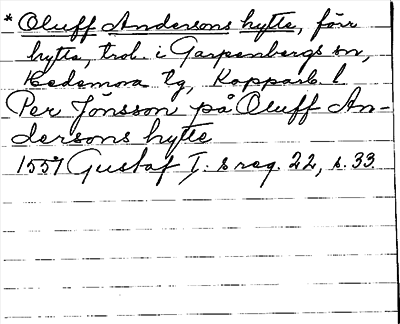 * Oluff Andersons hytte, förr
hytta, trol. i Garpenbergs sn,
Hedemora tg, Kopparb. l
Per Jönsson på Oluff An-
dersons hytte
1557 Gustaf I:s reg. 22, s. 33.